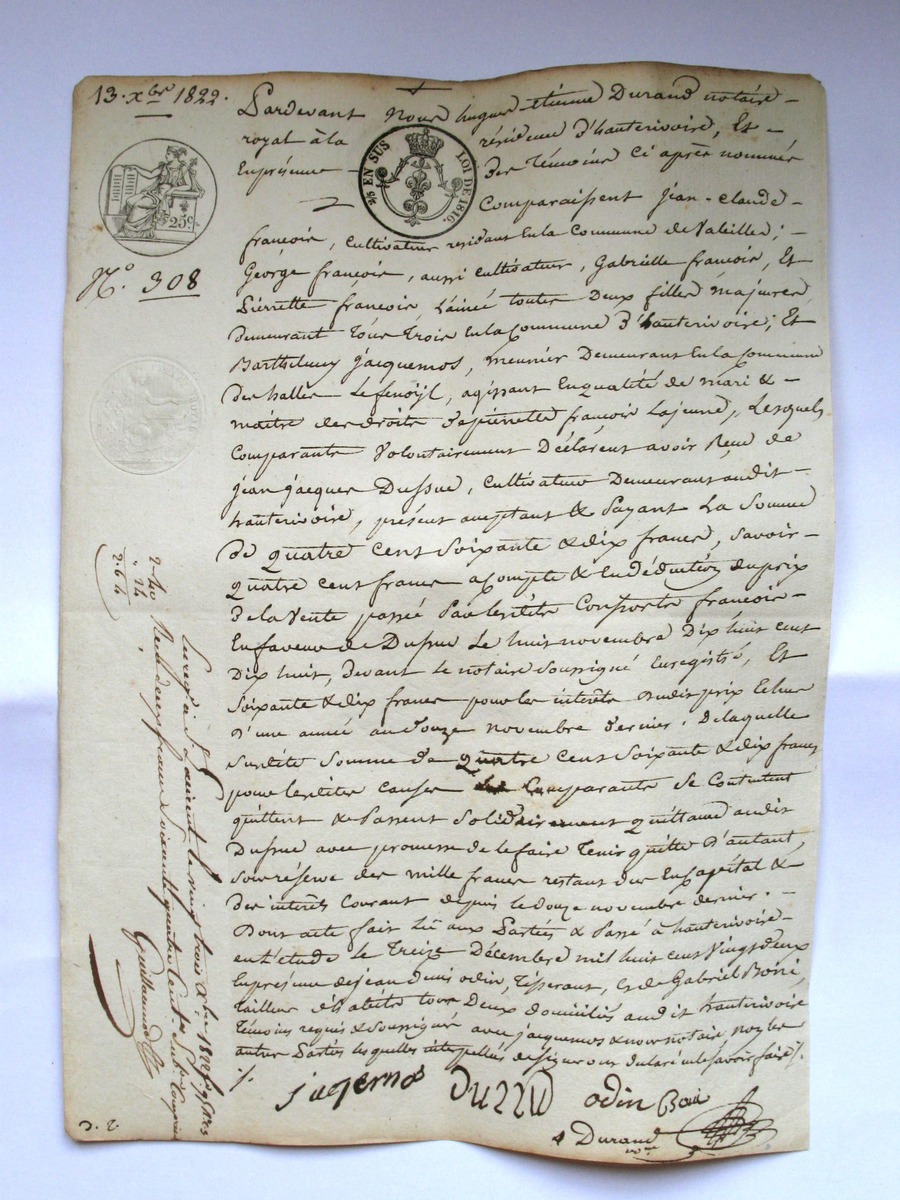 13. xbre 1822.
Pardevant Nous hugue étienne Durand notaire
royal à la résidence d'hauterivoire, Et
En présence des témoins Ci après nommés
25c EN SUS LOI DE 1816.
25c.
Comparaissent jean-claude
françois, Cultivateur residant En la Commune de Valeille;
N.° 308
George françois, aussi cultivateur, Gabrielle françois, Et
Pierrette françois, L'ainée toutes Deux filles majures
Demeurant tous trois En la Commune d'hauterivoire; Et
Barthelemy jacquemos, meunier Demeurant En la Commune
Des halles Lefenoÿl, agissant En qualité de mari &
maitre des droits de pierrette françois Lajeune, Lesquels
Comparants Volontairement Déclarent avoir Reçu de
jean jacques Dussud, Cultivateur Demeurant audit
hauterivoire, présent aceptant & Payant La Somme
De quatre cent Soixante & dix francs, savoir
quatre cent francs acompte & En déduction du prix
De la Vente passée Par lesdits Consorts françois
En faveur de Dussud Le huit novembre Dix huit cent
Dix huit, Devant le notaire Soussigné Enregistré, Et
Soixante & dix francs pour les intérêts dudit prix Echus
D'une année au douze novembre dernier; De laquelle
Susdite Somme de quatre cent Soixante & dix francs
pour lesdites causes les Comparants Se Contentent
quittent & Passent Solidairement quittance audit
Dussud avec promesse de le faire Tenir quitte D'autant,
Sous réserve des mille francs restant dus En Capital &
Des intérêts Courant depuis le douze novembre dernier.
Dont acte fait Lû aux Parties & Passé à hauterivoire
en L'étude le Treize Décembre mil huit cent Vingt Deux
En présence de jean Denis odin, Tisserant, Et de Gabriel Boiri
Tailleur d'habits tous Deux domiciliés audit hauterivoire
Témoins requis & Soussignés avec jacquemos & nous notaire, non les
autres Parties lesquelles interpellées de signer ont declaré ne le savoir faire
jaqemos Dussud odin Boiri
Durand
2.40
. 24
2.64
Enregé à St Laurent le vingt trois Xbre 1822
Reçu deux francs soixante quatre cent. Subon Comprise
Guillaumod